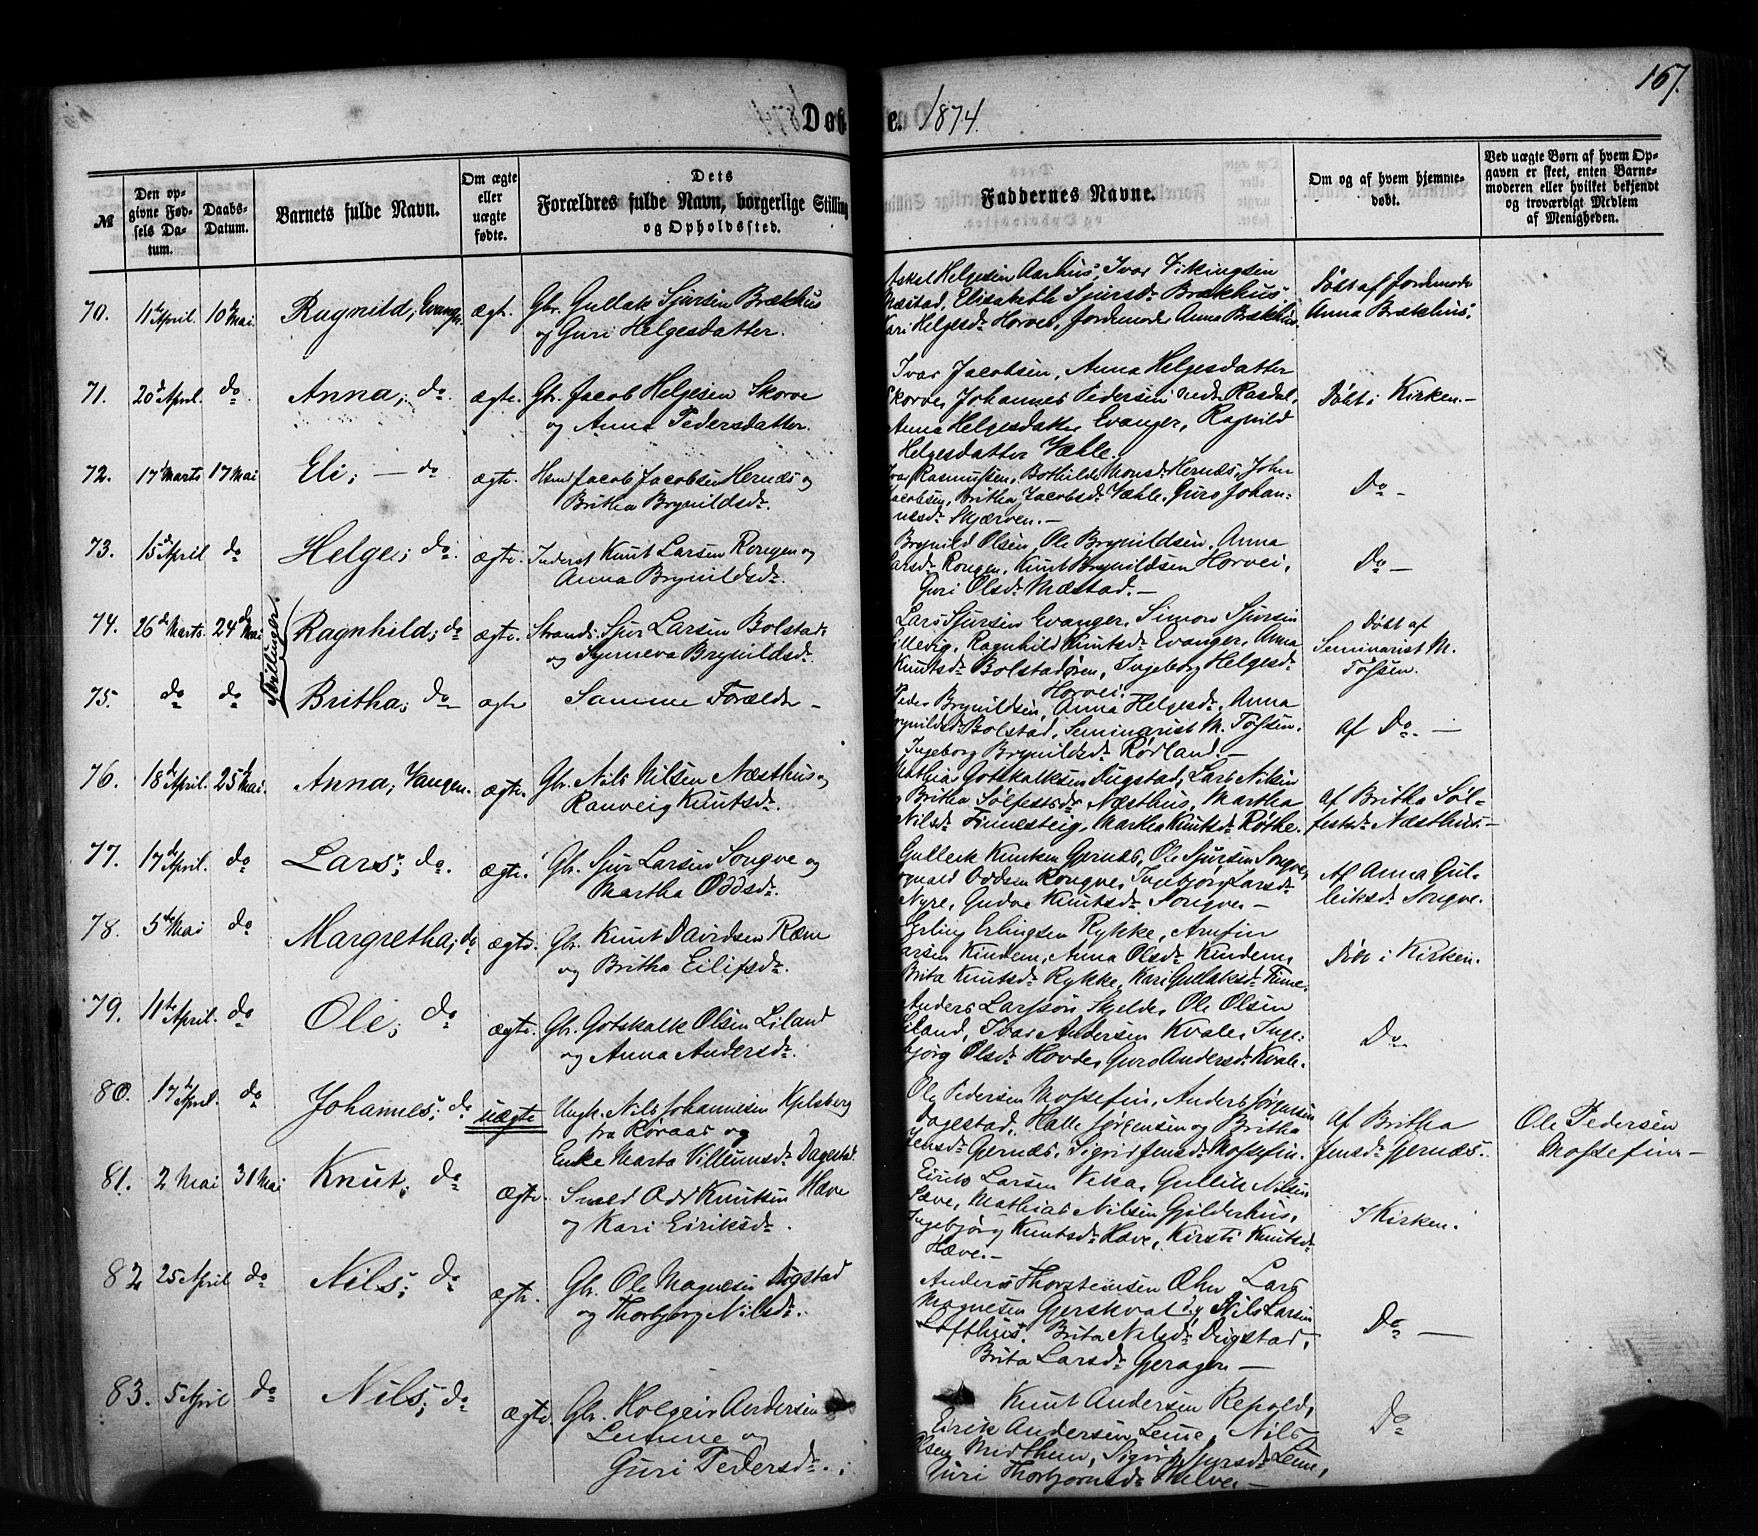 167.
Døbte. 1874.
№
Den opgivne Fødsels Datum.
Daabs-Datum.
Barnets fulde Navn.
Om ægte eller uægte fødte.
Dets Forældres fulde Navn, borgerlige Stilling og Opholdssted.
Faddernes Navne.
Om og af hvem hjemmedøbt.
Ved uægte Børn af hvem Opgaven er skeet, enten Barnemoderen eller hvilket bekjendt og troværdigt Medlem af Menigheden.
70. 11te April. 10de Mai. Ragnild, Evang. ægte. Gbr. Gullak Sjursen Brækhus
og Guri Helgesdatter.
Askel Helgesen Aarhus, Ivar Vikingsen
Mæstad, Elisabeth Sjursdr Brækhus,
Kari Helgesdr Horvei, Jordemoder Anna Brækhus.
Døbt af Jordemoder
Anna Brækhus.
71. 20de April. do Anna, do. ægte. Gbr. Jacob Helgesen Skorve
og Anna Pedersdatter.
Ivar Jacobsen, Anna Helgesdatter
Skorve, Johannes Pedersen nedre Rasdal,
Anna Helgesdatter Evanger, Ragnild
Helgesdatter Væhle.
Døbt i Kirken.
72. 17 Marts 17 Mai Eli, - do ægte. Hmd Jacob Jacobsen Hernæs og
Britha Brynildsdr.
Ivar Rasmussen, Bothilde Monsdr Hernæs, John
Jacobsen, Britha Jacobsdr Væhle, Guro Johan-
nesdr Skjerven.
Do
73. 15de April do Helge, do. ægte. Inderst Knut Larsen Rongen og
Anna Brynildsdr.
Brynild Olsen, Ole Brynildsen, Anna
Larsdr Rongen, Knut Brynildsen Horvei,
Guri Olsdr Mæstad.
Do
Tvillinger.
74. 26de Marts. 24de Mai Ragnhild, do ægte. Strands. Sjur Larsen Bolstad
og Synneva Brynildsdr.
Lars Sjursen Evanger, Simon Sjursen
Lillevig, Ragnhild Knutsdr Evanger, Anna
Knutsdr Bolstadøren, Ingeborg Helgesdr
Horvei.
Døbt af
Seminarist M.
Tøssen.
75. do do Britha, do ægte Samme Forældre
Peder Brynildsen, Anna Helgesdr, Anna
Brynildsdr Bolstad, Seminarist M. Tøssen.
Ingeborg Brynildsdr Rørland.
af Do.
76. 18de April. 25de Mai. Anna, Vangen. ægte. Gbr. Nils Nilsen Næsthus og
Ranveig Knutsdr.
Mathias Gotskalksen Dugstad, Lars Nilsen
og Britha Sølfestsdr Næsthus, Martha
Nilsdr Finnesteig, Martha Knutsdr Røthe.
af Britha Søl-
festsdr Næsthus.
77. 17de April. do Lars, do. ægte. Gbr. Sjur Larsen Songve og
Martha Oddsdr.
Gulleik Knutsen Gjernæs, Ole Sjursen Songve,
Ragnald Oddsen Rongve, Ingebjørg Larsdr
Nyre, Gudve Knutsdr Songve.
Af Anna Gul-
leiksdr Songve.
78. 5te Mai do Margretha, do ægte. Gbr. Knut Davidsen Ræne
og Britha Eilifsdr.
Erling Erlingsen Rykke, Arnfin
Larsen Kindem, Anna Olsdr Kindem,
Brita Knutsdr Rykke, Kari Gullaksdr Finne.
Døbt i Kirken.
79. 11te April. do Ole, do ægte. Gbr. Gotskalk Olsen Liland
og Anna Andersdr.
Anders Larsson Skjelde, Ole Olsen
Liland, Ivar Andersen Kvale, Inge-
bjørg Olsdr Hovde, Guro Andersdr Kvale.
Do.
80. 17de April. do Johannes, do uægte Ungk. Nils Johannesen Kjelsberg
fra Røraas og
Enke Marta Villumsdr Dagestad
Ole Pedersen Mossefin, Anders Jørgensen
Dagestad, Halle Jørgensen og Britha
Jensdr Gjernæs, Sigrid Jensdr Mossefin.
af Britha
Jensdr Gjernæs.
Ole Pedersen
Mossefin
81. 2 Mai 31 Mai Knut, do ægte. Smed Odd Knutsen Hæve
og Kari Eiriksdr.
Eirik Larsen Vika, Gullik Nilsen
Sæve, Mathias Nilsen Gjelderhus,
Ingebjørg Knutsdr Hæve, Kirsti Knutsdr
Hæve.
I Kirken.
82 25 April do Nils, do ægte. Gbr. Ole Magnesen Dugstad
og Thorbjørg Nilsdr.
Anders Thorsteinsen Øhn, Lars
Magnesen Gjerskval og Nils Larsen
Lofthus. Brita Nilsdr Dugstad,
Brita Larsdr Gjeragen
Do
83. 5 April do Nils, do ægte Gbr. Holgeir Andersen
Lemme og
Guri Pedersdr.
Knut Andersen Repold,
Eirik Andersen Leme, Nils
Olsen Midthun, Sigrid Sjursdr Leme,
Guri Thorbjørnsdr Helve.
Do